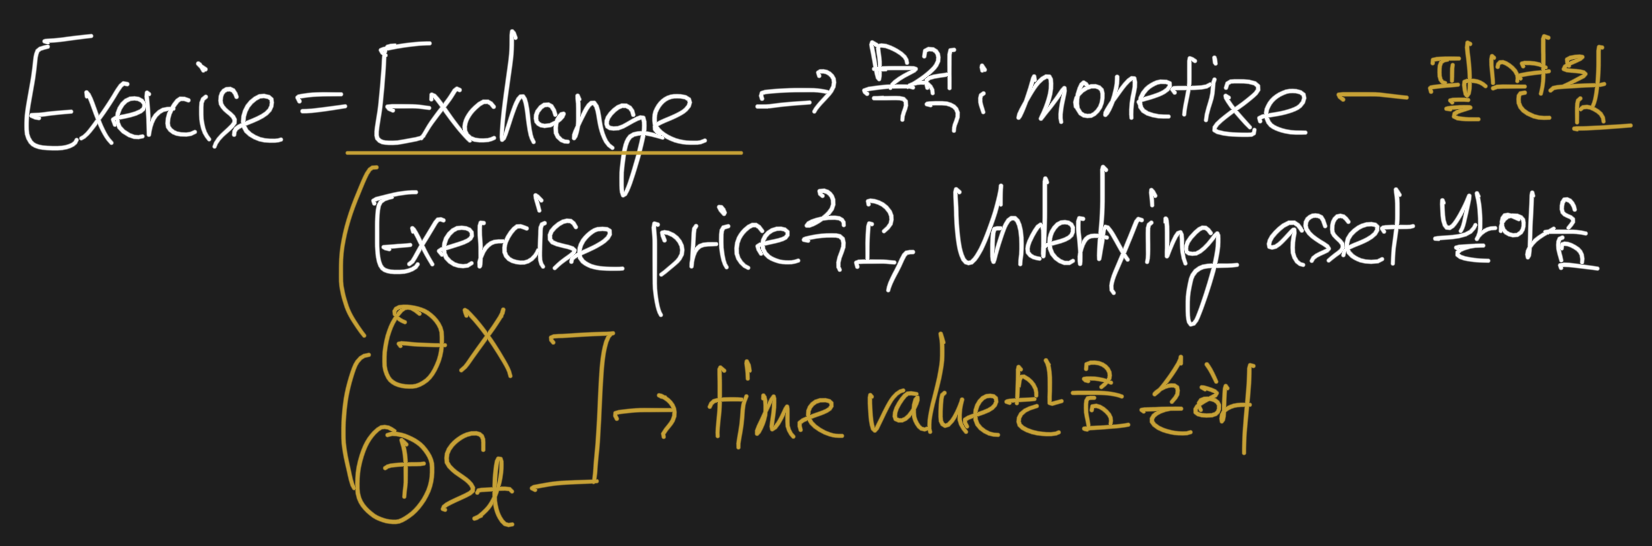 Exercise = Exchange ⇒ 목적: monetize — 팔면됨
Exercise price주고, Underlying asset 받아옴
⊖X
→ time value만큼 손해
⊕St